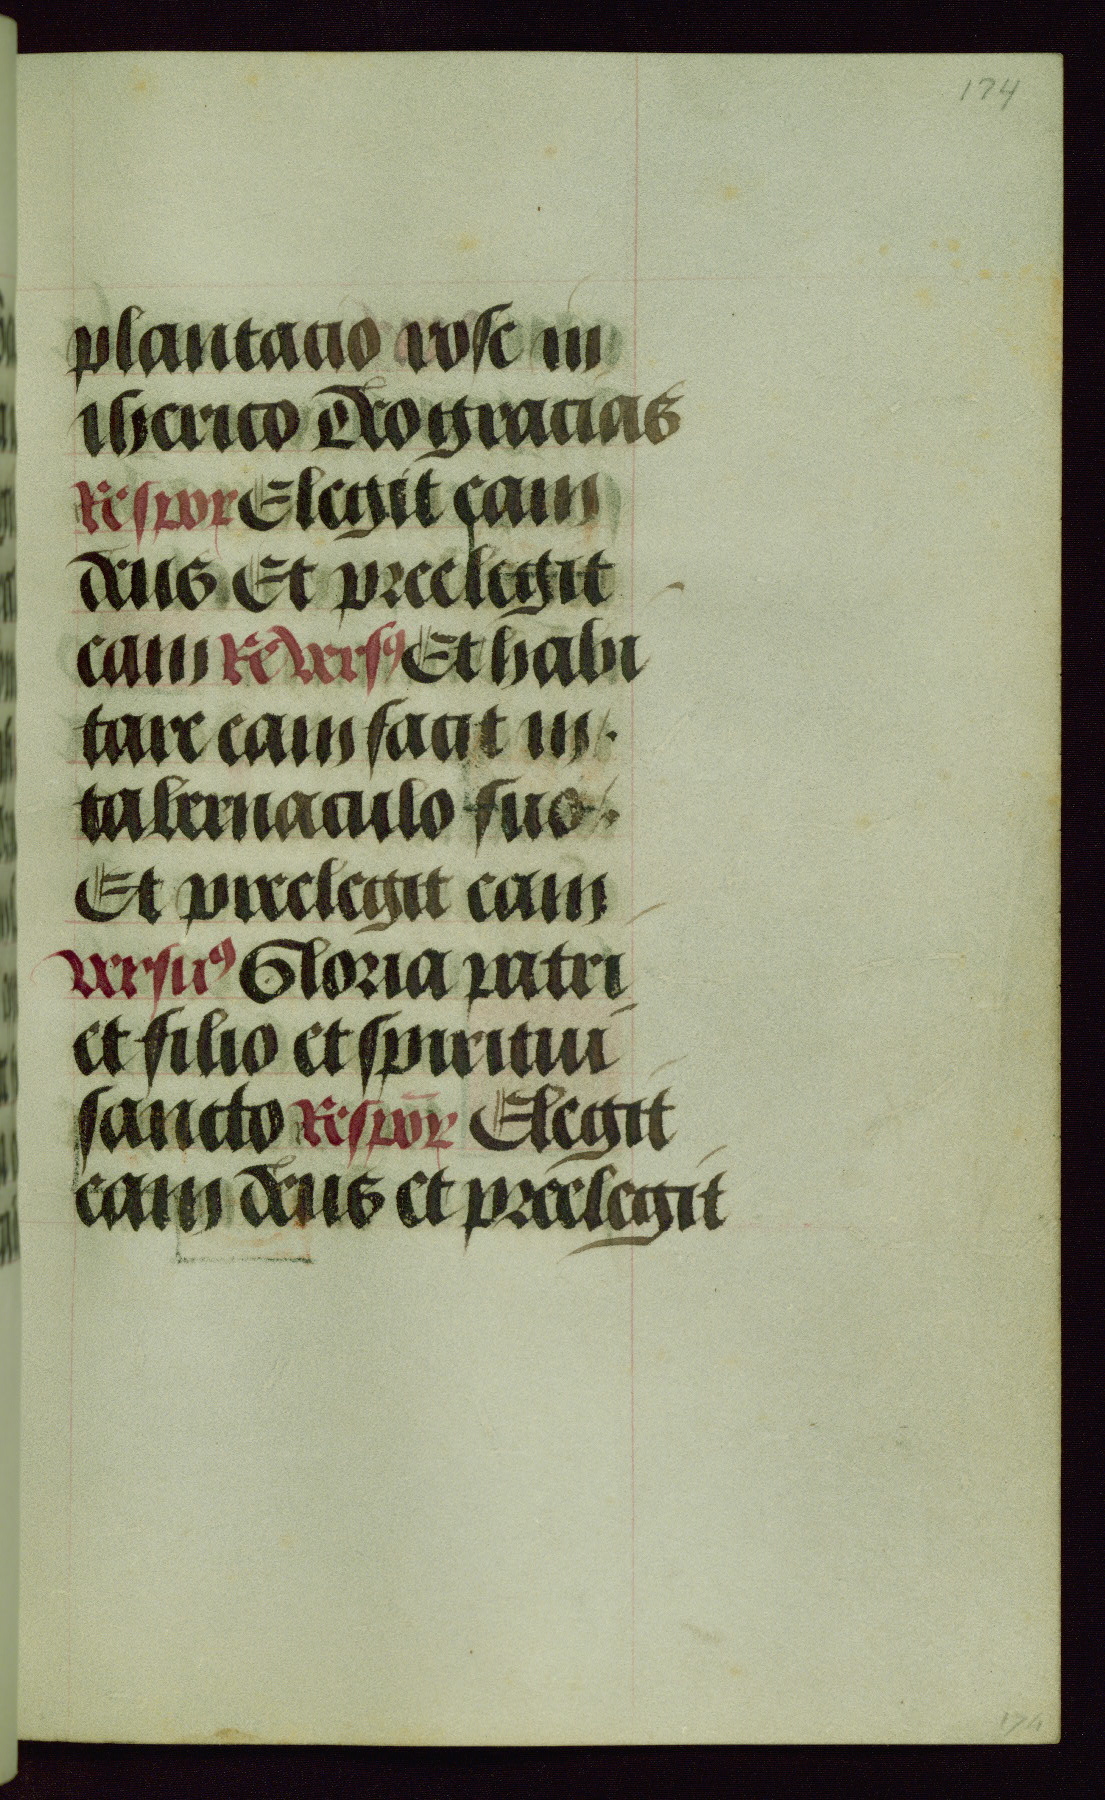 174
plantacio rose in
iherico Deo gracias
Respoꝝ Elegit eam
deus Et preelegit
eam Re Versꝰ Et habi
tare eam facit in
tabernaculo suo
Et preelegit eam
Versuꝰ Gloria patri
et filio et spiritui
sancto Respōꝝ Elegit
eam deus et preelegit
174